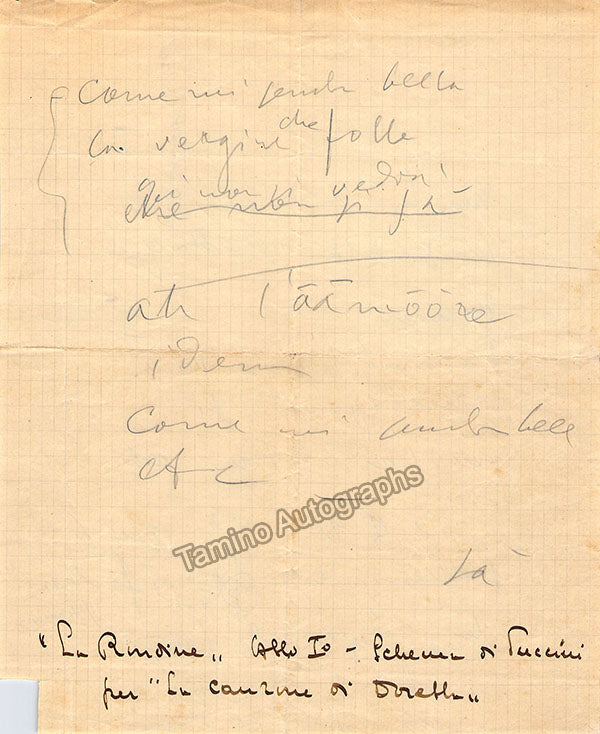 Come mi sembra bella
la vergine che folle
qui non si vedrà
che non si fa
ah l'āāmōōre
idem
Come mi sembra bella
etc
Tamino Autographs
là
"La Rondine„ Atto Iº - Schema di Puccini
per "La canzone di Doretta„